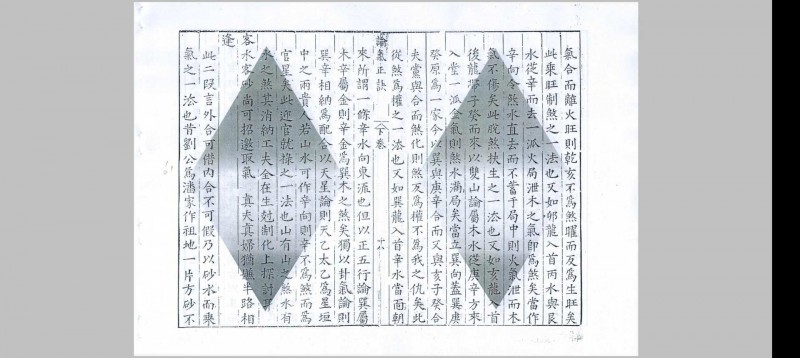 氣合而離火旺則乾亥不爲煞曜而反爲生旺矣
此乘旺制煞之一法也又如卯龍入首丙水與艮
水從辛而去一派火局泄木之氣即爲煞矣當作
辛向令煞水直去而不蓄于局中則火氣泄而木
氣不傷矣此脫煞扶生之一法也又如亥龍入首
後龍帶子癸而來以雙山論屬木水從庚辛方來
入堂一派金氣則煞水满局矣當立巽向蓋巽庚
癸原爲一家今以巽與庚辛合而又與亥子癸合
夫黨與合而煞化則煞反爲權不爲我之仇矣此
從煞爲權之一法也又如巽龍入首辛水當面朝
氣正訣 下卷 十八
來所謂一條辛水向東派也但以正五行論巽屬
木辛屬金則辛金爲巽木之煞矣獨以卦氣論則
巽辛相納爲配合以天星論則天乙太乙爲星垣
中之兩貴人若山水可作辛向則辛不爲煞而爲
官星矣此迎官就祿之一法也山有山之煞水有
水之煞其消納工夫全在生剋制化上探討
客水客砂尚可招邀取氣 真夫真婦猶嫌半路相
逢
此二段言外合可借内合不可假乃以砂水而乘
氣之一法也昔劉公爲潘家作祖地一片方砂不